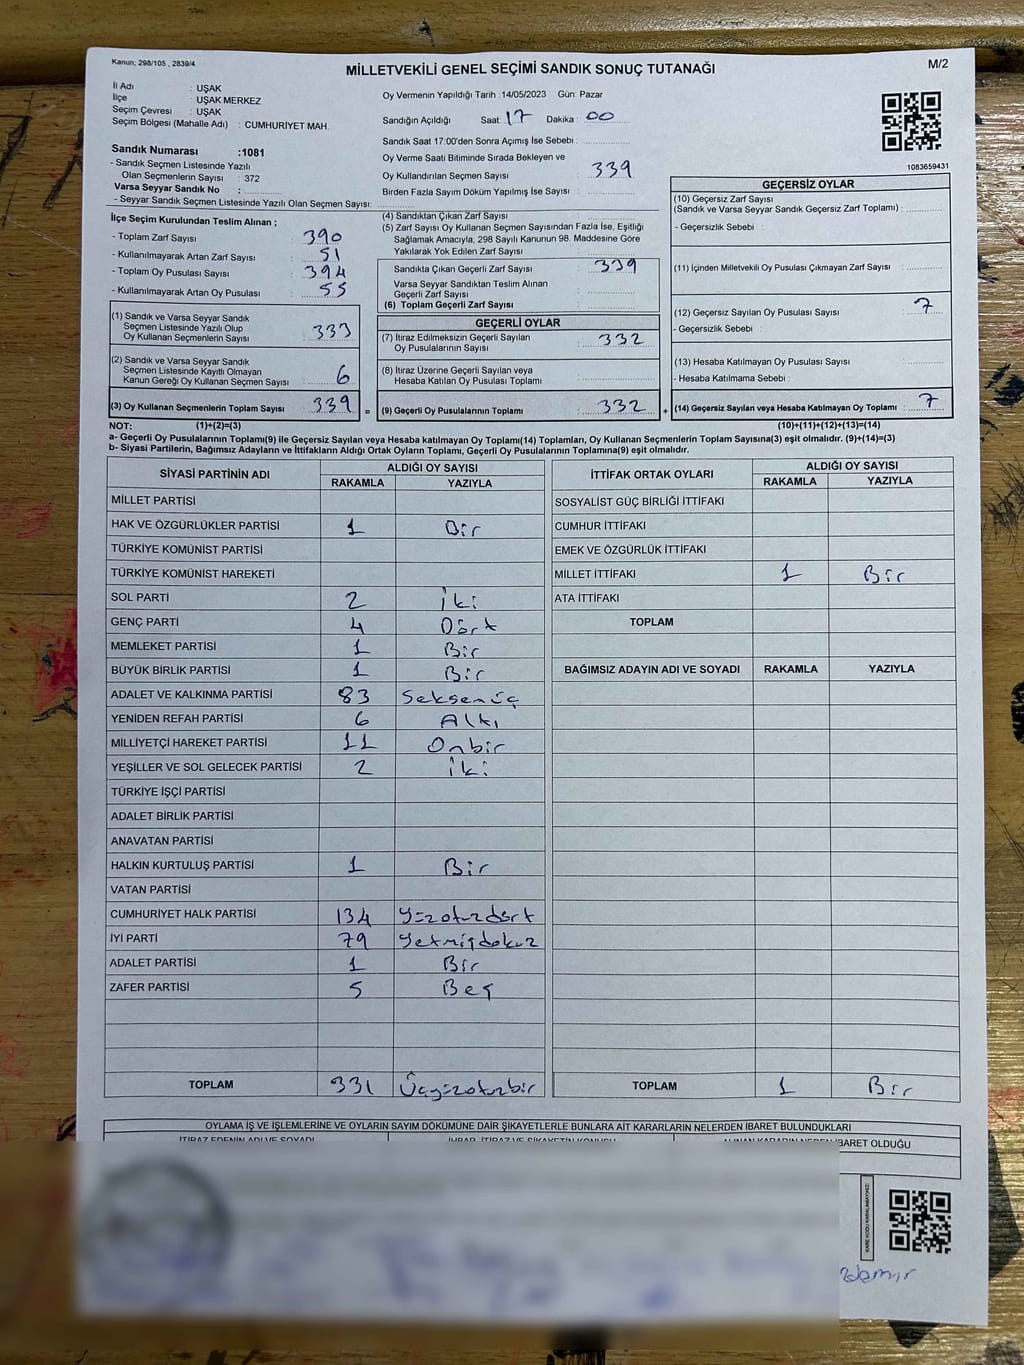 Kanun; 298/105 , 2839/4
M/2
MİLLETVEKİLİ GENEL SEÇİMİ SANDIK SONUÇ TUTANAĞI
İl Adı : UŞAK
İlçe : UŞAK MERKEZ
Seçim Çevresi : UŞAK
Seçim Bölgesi (Mahalle Adı) : CUMHURİYET MAH.
Sandık Numarası :1081
- Sandık Seçmen Listesinde Yazılı
Olan Seçmenlerin Sayısı : 372
Varsa Seyyar Sandık No :
- Seyyar Sandık Seçmen Listesinde Yazılı Olan Seçmen Sayısı:
Oy Vermenin Yapıldığı Tarih :14/05/2023 Gün: Pazar
Sandığın Açıldığı Saat: 17 Dakika : 00
Sandık Saat 17:00'den Sonra Açımış İse Sebebi :
Oy Verme Saati Bitiminde Sırada Bekleyen ve
Oy Kullandırılan Seçmen Sayısı : 339
Birden Fazla Sayım Döküm Yapılmış İse Sayısı :
1083659431
İlçe Seçim Kurulundan Teslim Alınan ;
- Toplam Zarf Sayısı : 390
- Kullanılmayarak Artan Zarf Sayısı : 51
- Toplam Oy Pusulası Sayısı : 394
- Kullanılmayarak Artan Oy Pusulası : 55
(1) Sandık ve Varsa Seyyar Sandık
Seçmen Listesinde Yazılı Olup
Oy Kullanan Seçmenlerin Sayısı : 333
(2) Sandık ve Varsa Seyyar Sandık
Seçmen Listesinde Kayıtlı Olmayan
Kanun Gereği Oy Kullanan Seçmen Sayısı : 6
(3) Oy Kullanan Seçmenlerin Toplam Sayısı : 339 =
(4) Sandıktan Çıkan Zarf Sayısı
(5) Zarf Sayısı Oy Kullanan Seçmen Sayısından Fazla İse, Eşitliği
Sağlamak Amacıyla, 298 Sayılı Kanunun 98. Maddesine Göre
Yakılarak Yok Edilen Zarf Sayısı :
Sandıkta Çıkan Geçerli Zarf Sayısı : 339
Varsa Seyyar Sandıktan Teslim Alınan
Geçerli Zarf Sayısı :
(6) Toplam Geçerli Zarf Sayısı :
GEÇERLİ OYLAR
(7) İtiraz Edilmeksizin Geçerli Sayılan
Oy Pusulalarının Sayısı : 332
(8) İtiraz Üzerine Geçerli Sayılan veya
Hesaba Katılan Oy Pusulası Toplamı :
(9) Geçerli Oy Pusulalarının Toplamı : 332 +
GEÇERSİZ OYLAR
(10) Geçersiz Zarf Sayısı
(Sandık ve Varsa Seyyar Sandık Geçersiz Zarf Toplamı) :
- Geçersizlik Sebebi :
(11) İçinden Milletvekili Oy Pusulası Çıkmayan Zarf Sayısı :
(12) Geçersiz Sayılan Oy Pusulası Sayısı : 7
- Geçersizlik Sebebi :
(13) Hesaba Katılmayan Oy Pusulası Sayısı :
- Hesaba Katılmama Sebebi :
(14) Geçersiz Sayılan veya Hesaba Katılmayan Oy Toplamı : 7
NOT: (1)+(2)=(3) (10)+(11)+(12)+(13)=(14)
a- Geçerli Oy Pusulalarının Toplamı(9) ile Geçersiz Sayılan veya Hesaba katılmayan Oy Toplamı(14) Toplamları, Oy Kullanan Seçmenlerin Toplam Sayısına(3) eşit olmalıdır. (9)+(14)=(3)
b- Siyasi Partilerin, Bağımsız Adayların ve İttifakların Aldığı Ortak Oyların Toplamı, Geçerli Oy Pusulalarının Toplamına(9) eşit olmalıdır.
SİYASİ PARTİNİN ADI ALDIĞI OY SAYISI
RAKAMLA YAZIYLA
MİLLET PARTİSİ
HAK VE ÖZGÜRLÜKLER PARTİSİ 1 Bir
TÜRKİYE KOMÜNİST PARTİSİ
TÜRKİYE KOMÜNİST HAREKETİ
SOL PARTİ 2 İki
GENÇ PARTİ 4 Dört
MEMLEKET PARTİSİ 1 Bir
BÜYÜK BİRLİK PARTİSİ 1 Bir
ADALET VE KALKINMA PARTİSİ 83 Seksenüç
YENİDEN REFAH PARTİSİ 6 Altı
MİLLİYETÇİ HAREKET PARTİSİ 11 Onbir
YEŞİLLER VE SOL GELECEK PARTİSİ 2 İki
TÜRKİYE İŞÇİ PARTİSİ
ADALET BİRLİK PARTİSİ
ANAVATAN PARTİSİ
HALKIN KURTULUŞ PARTİSİ 1 Bir
VATAN PARTİSİ
CUMHURİYET HALK PARTİSİ 134 Yüzotuzdört
İYİ PARTİ 79 Yetmişdokuz
ADALET PARTİSİ 1 Bir
ZAFER PARTİSİ 5 Beş
TOPLAM 331 Üçyüzotuzbir
İTTİFAK ORTAK OYLARI ALDIĞI OY SAYISI
RAKAMLA YAZIYLA
SOSYALİST GÜÇ BİRLİĞİ İTTİFAKI
CUMHUR İTTİFAKI
EMEK VE ÖZGÜRLÜK İTTİFAKI
MİLLET İTTİFAKI 1 Bir
ATA İTTİFAKI
TOPLAM
BAĞIMSIZ ADAYIN ADI VE SOYADI RAKAMLA YAZIYLA
TOPLAM 1 Bir
OYLAMA İŞ VE İŞLEMLERİNE VE OYLARIN SAYIM DÖKÜMÜNE DAİR ŞİKAYETLERLE BUNLARA AİT KARARLARIN NELERDEN İBARET BULUNDUKLARI
İTİRAZ EDENİN ADI VE SOYADI İHBAR, İTİRAZ VE ŞİKAYETİN KONUSU ALINAN KARARIN NEDEN İBARET OLDUĞU